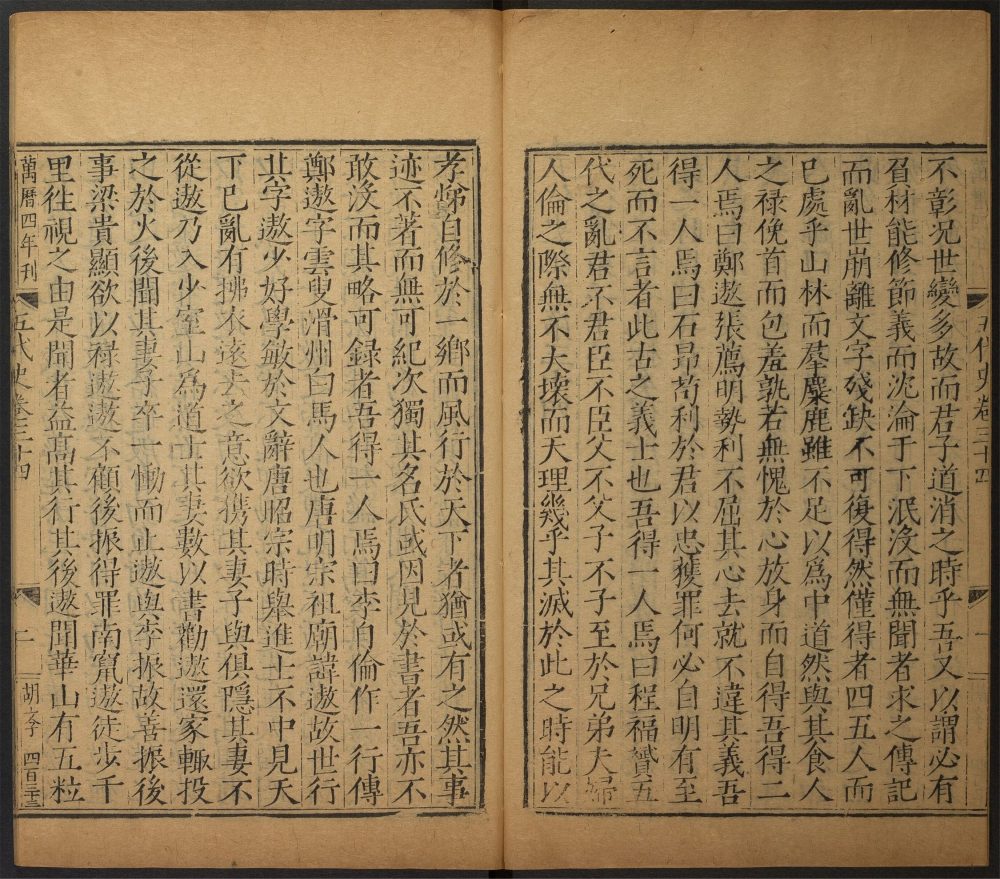 不彰况世變多故而君子道消之時乎吾又以謂必有
負材能修節義而沈淪于下泯没而無聞者求之傳記
而亂世崩離文字殘缺不可復得然僅得者四五人而
已處乎山林而羣麋鹿雖不足以爲中道然與其食人
之禄俛首而包羞孰若無愧於心放身而自得吾得二
人焉曰鄭遨張薦明勢利不屈其心去就不違其義吾
得一人焉曰石昂苟利於君以忠獲罪何必自明有至
死而不言者此古之義士也吾得一人焉曰程福贇五
代之亂君不君臣不臣父不父子不子至於兄弟夫婦
人倫之際無不大壞而天理幾乎其滅於此之時能以
五代史卷三十四
一
孝悌自修於一鄉而風行於天下者猶或有之然其事
迹不著而無可紀次獨其名氏或因見於書者吾亦不
敢没而其略可録者吾得一人焉曰李自倫作一行傳
鄭遨字雲叟滑州白馬人也唐明宗祖廟諱遨故世行
其字遨少好學敏於文辭唐昭宗時舉進士不中見天
下已亂有拂衣遠去之意欲携其妻子與俱隱其妻不
從遨乃入少室山爲道士其妻數以書勸遨還家輒投
之於火後聞其妻子卒一慟而止遨與李振故善振後
事梁貴顯欲以禄遨遨不顧後振得罪南竄遨徒步千
里徃視之由是聞者益高其行其後遨聞華山有五粒
萬曆四年刊
五代史卷三十四
胡李 四百三十三